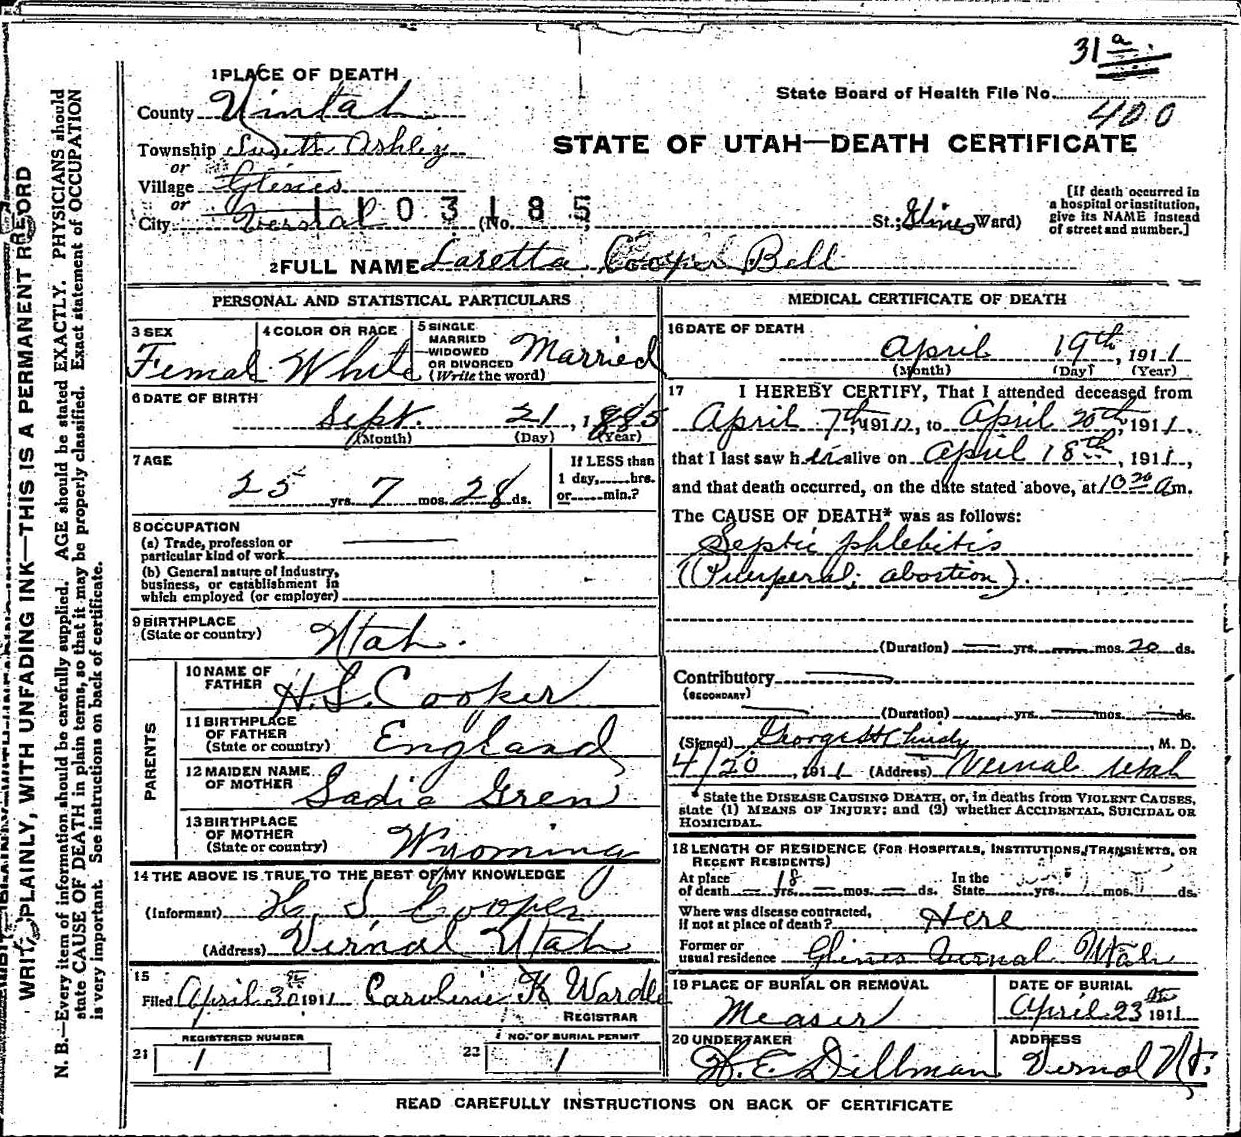 31 a.
1 PLACE OF DEATH
State Board of Health File No. 400
County Uintah
STATE OF UTAH—DEATH CERTIFICATE
Township South Ashley
or
Village Glines
or
City Vernal 1103185 (No. St.; Glines Ward)
[If death occurred in
a hospital or institution,
give its NAME instead
of street and number.]
2 FULL NAME Laretta Cooper Bell
PERSONAL AND STATISTICAL PARTICULARS
3 SEX
Femal
4 COLOR OR RACE
White
5 SINGLE
MARRIED
WIDOWED
OR DIVORCED
(Write the word)
Married
6 DATE OF BIRTH
Sept. 21, 1885
(Month) (Day) (Year)
7 AGE
25 yrs. 7 mos. 28 ds.
If LESS than
1 day,......hrs.
or......min.?
8 OCCUPATION
(a) Trade, profession or
particular kind of work
(b) General nature of industry,
business, or establishment in
which employed (or employer)
9 BIRTHPLACE
(State or country) Utah.
PARENTS
10 NAME OF
FATHER H. S. Cooper
11 BIRTHPLACE
OF FATHER
(State or country) England
12 MAIDEN NAME
OF MOTHER Sadie Gren
13 BIRTHPLACE
OF MOTHER
(State or country) Wyoming
14 THE ABOVE IS TRUE TO THE BEST OF MY KNOWLEDGE
(Informant) H. S. Cooper
(Address) Vernal Utah
15
Filed April 30 1911 Caroline K Wardle
REGISTRAR
REGISTERED NUMBER
21 1
NO. OF BURIAL PERMIT
22 1
MEDICAL CERTIFICATE OF DEATH
16 DATE OF DEATH
April 19th, 1911
(Month) (Day) (Year)
17 I HEREBY CERTIFY, That I attended deceased from
April 7th, 1911, to April 20th, 1911,
that I last saw her alive on April 18th, 1911,
and that death occurred, on the date stated above, at 10 30 am.
The CAUSE OF DEATH* was as follows:
Septic phlebitis
(Puerperal; abortion).
(Duration) yrs. mos. 20 ds.
Contributory
(SECONDARY)
(Duration) yrs. mos. ds.
(Signed) George H., M. D.
4/20, 1911 (Address) Vernal Utah
*State the DISEASE CAUSING DEATH, or, in deaths from VIOLENT CAUSES,
state (1) MEANS OF INJURY; and (2) whether ACCIDENTAL, SUICIDAL OR
HOMICIDAL.
18 LENGTH OF RESIDENCE (FOR HOSPITALS, INSTITUTIONS, TRANSIENTS, OR
RECENT RESIDENTS)
At place
of death 18 yrs. mos. ds.
In the
State yrs. ds.
Where was disease contracted,
if not at place of death? Here
Former or
usual residence Glines Vernal Utah
19 PLACE OF BURIAL OR REMOVAL
Measer
DATE OF BURIAL
April 23 1911
20 UNDERTAKER
H. E. Dillman
ADDRESS
Vernal Ut.
READ CAREFULLY INSTRUCTIONS ON BACK OF CERTIFICATE
WRITE PLAINLY, WITH UNFADING INK—THIS IS A PERMANENT RECORD
N. B.—Every item of information should be carefully supplied. AGE should be stated EXACTLY. PHYSICIANS should
state CAUSE OF DEATH in plain terms, so that it may be properly classified. Exact statement of OCCUPATION
is very important. See instructions on back of certificate.